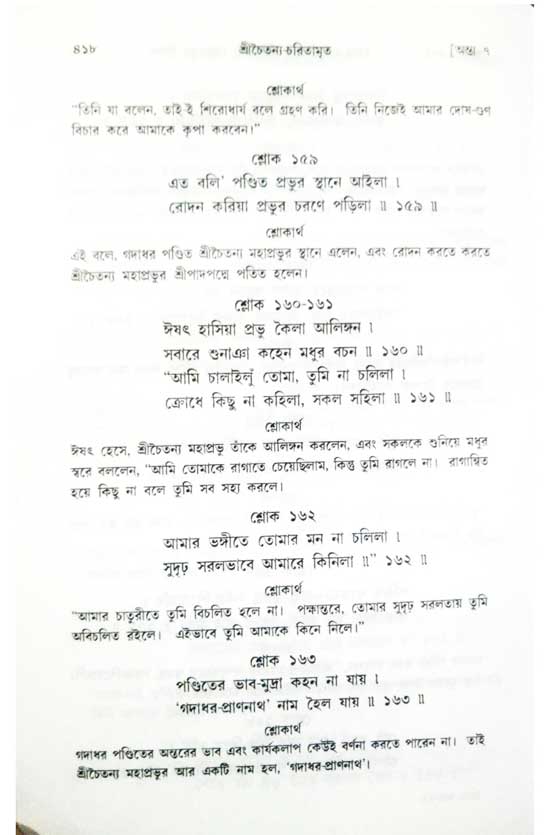 ৪১৮ শ্রীচৈতন্য-চরিতামৃত [অন্ত্য ৭
শ্লোকার্থ
“তিনি যা বলেন, তাই-ই শিরোধার্য বলে গ্রহণ করি। তিনি নিজেই আমার দোষ-গুণ
বিচার করে আমাকে কৃপা করবেন।”
শ্লোক ১৫৯
এত বলি’ পণ্ডিত প্রভুর স্থানে আইলা ।
রোদন করিয়া প্রভুর চরণে পড়িলা ॥ ১৫৯ ॥
শ্লোকার্থ
এই বলে, গদাধর পণ্ডিত শ্রীচৈতন্য মহাপ্রভুর স্থানে এলেন, এবং রোদন করতে করতে
শ্রীচৈতন্য মহাপ্রভুর শ্রীপাদপদ্মে পতিত হলেন।
শ্লোক ১৬০-১৬১
ঈষৎ হাসিয়া প্রভু কৈলা আলিঙ্গন ।
সবারে শুনাঞা কহেন মধুর বচন ॥ ১৬০ ॥
“আমি চালাইলুঁ তোমা, তুমি না চলিলা ।
ক্রোধে কিছু না কহিলা, সকল সহিলা ॥ ১৬১ ॥
শ্লোকার্থ
ঈষৎ হেসে, শ্রীচৈতন্য মহাপ্রভু তাঁকে আলিঙ্গন করলেন, এবং সকলকে শুনিয়ে মধুর
স্বরে বললেন, “আমি তোমাকে রাগাতে চেয়েছিলাম, কিন্তু তুমি রাগলে না। রাগান্বিত
হয়ে কিছু না বলে তুমি সব সহ্য করলে।
শ্লোক ১৬২
আমার ভঙ্গীতে তোমার মন না চলিলা ।
সুদৃঢ় সরলভাবে আমারে কিনিলা ॥” ১৬২ ॥
শ্লোকার্থ
“আমার চাতুরীতে তুমি বিচলিত হলে না। পক্ষান্তরে, তোমার সুদৃঢ় সরলতায় তুমি
অবিচলিত রইলে। এইভাবে তুমি আমাকে কিনে নিলে।”
শ্লোক ১৬৩
পণ্ডিতের ভাব-মুদ্রা কহন না যায় ।
‘গদাধর-প্রাণনাথ’ নাম হৈল যায় ॥ ১৬৩ ॥
শ্লোকার্থ
গদাধর পণ্ডিতের অন্তরের ভাব এবং কার্যকলাপ কেউই বর্ণনা করতে পারেন না। তাই
শ্রীচৈতন্য মহাপ্রভুর আর একটি নাম হল, ‘গদাধর-প্রাণনাথ’।